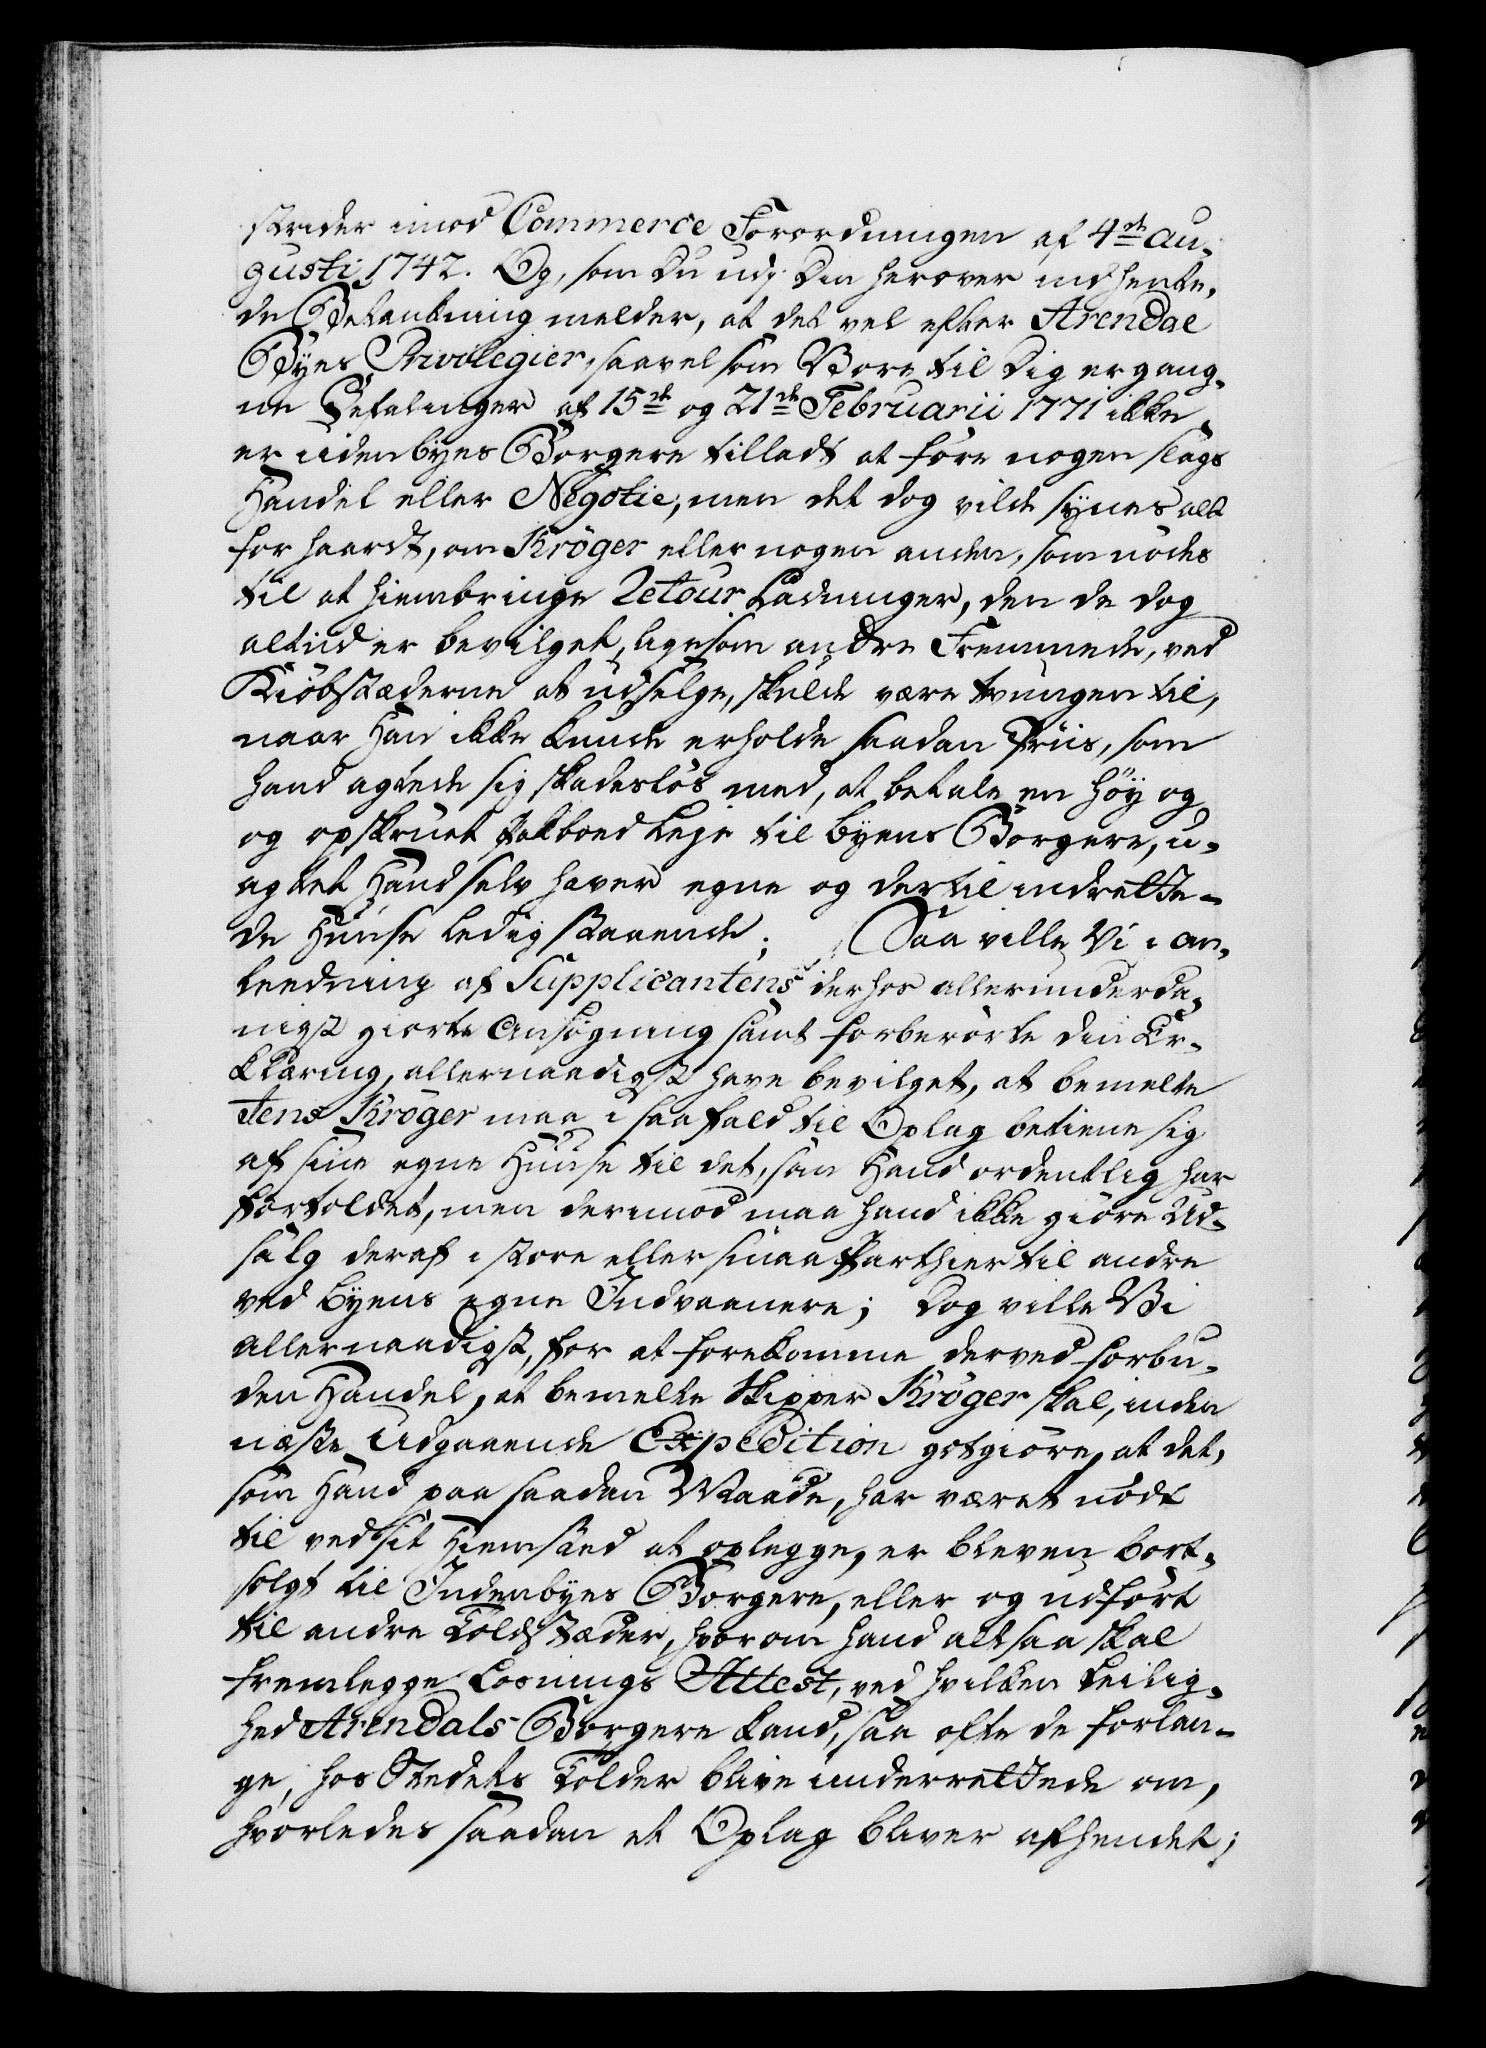 strider imod Commerce Forordningen af 4de Au-
gusti 1742. Og, som Du udj Din herover indhente-
de Betænkning melder, at det vel efter Arendal
Byes Privilegier, saavel som Vore til Dig ergang-
ne Befalinger af 15de og 21de Februarii 1771 ikke
er udenbyes Borgere tilladt at føre nogen slags
Handel eller Negotie, men det dog vilde synes alt
for haardt, om Kröger eller nogen anden, som nödes
til at hiembringe Retour Ladninger, den de dog
altiid er bevilget, ligesom andre Fremmede, ved
Kiöbstæderne at udselge, skulde være tvungen til,
naar Han ikke kunde erholde saadan Priis, som
hand agtede sig skadeslös med, at betale en höy og
og opskruet Pakboed Leje til byens Borgere, u-
agtet Hand selv haver egne og dertil indrette-
de Huuse ledig staaende; Saa ville Vi i an-
leedning af Supplicantens derhos allerunderda-
nigst giorte Ansögning samt forberörte din Er-
klæring, allernaadigst have bevilget, at bemelte
Jens Kröger maa i saa fald til Oplag betiene sig
af sine egne Huuse til det, som Hand ordentlig har
fortoldet, men derimod maa hand ikke giöre Ud-
salg deraf i store eller smaa Parthier til andre
end byens egne Indvaanere; Dog ville Vi
allernaadigst, for at forekomme derved forbu-
den Handel, at bemelte Skipper Kröger skal, inden
næste Udgaaende Expedition gotgiöre, at det,
som Hand paa saadan Maade, har været nödt
til ved sit Hiemsted at oplegge, er bleven bort-
solgt til Indenbyes Borgere, eller og udfört
til andre Toldstæder, hvorom hand altsaa skal
fremlegge Losnings Attest, ved hvilken Leilig-
hed Arendals Borgere kand, saa ofte de forlan-
ge, hos Stedets Tolder blive underrettede om,
hvorledes saadan et Oplag bliver afhendet;